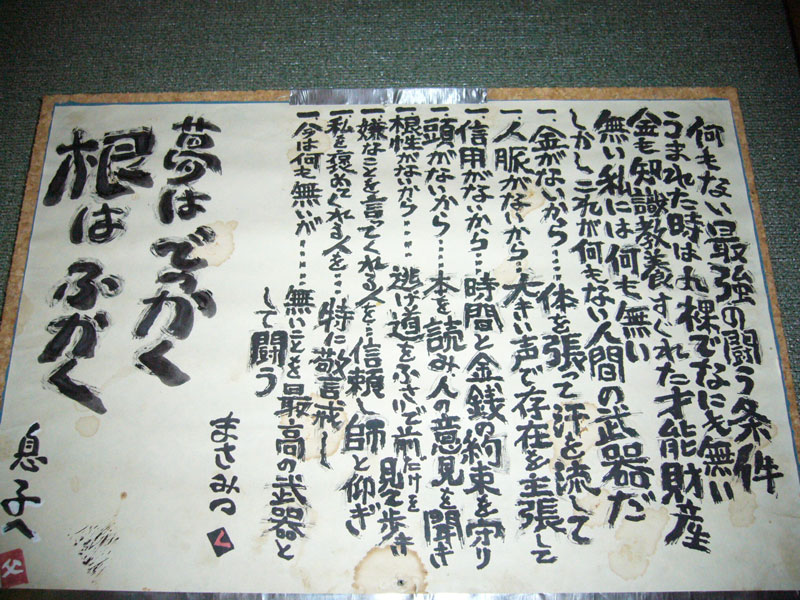 何もない最強の闘う条件
うまれた時は丸裸でなにも無い
金も知識教養すぐれた才能財産
無い私には何も無い
しかしこれが何もない人間の武器だ
一、金がないから‥‥体を張って汗を流して
一人脈がないから‥大きい声で存在を主張して
一信用がないから‥時間と金銭の約束を守り
一頭がないから‥‥本を読み人の意見を聞き
一根性がないから‥‥逃げ道をふさいで前だけを見て歩き
一嫌なことを言てくれる人を‥信頼し師と仰ぎ
一私を褒めてくれる人を‥‥特に警戒し
一今は何も無いが‥‥‥無いことを最高の武器と
して闘う
まさみつ
く
夢はでっかく
根はふかく
息子へ
父